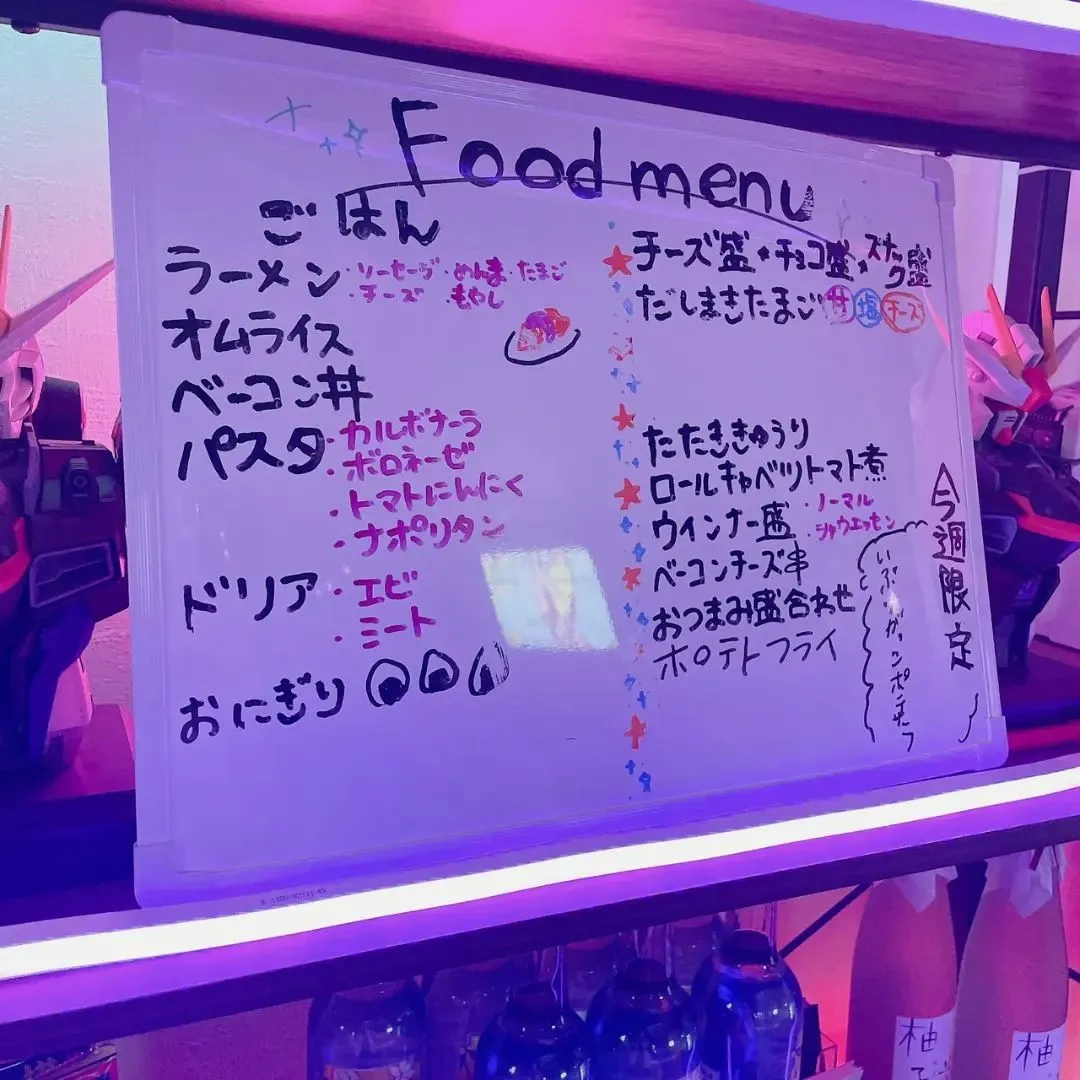 Food menu
ごはん
ラーメン ・ソーセージ ・めんま ・たまご
・チーズ ・もやし
オムライス
ベーコン丼
パスタ ・カルボナーラ
・ボロネーゼ
・トマトにんにく
・ナポリタン
ドリア ・エビ
・ミート
おにぎり
チーズ盛・チョコ盛・スナック盛
だしまきたまご 甘 塩 チーズ
たたききゅうり
ロールキャベツトマト煮
ウインナー盛 ・ノーマル
・シャウエッセン
ベーコンチーズ串
おつまみ盛合わせ
ポテトフライ
今週限定
柚
柚